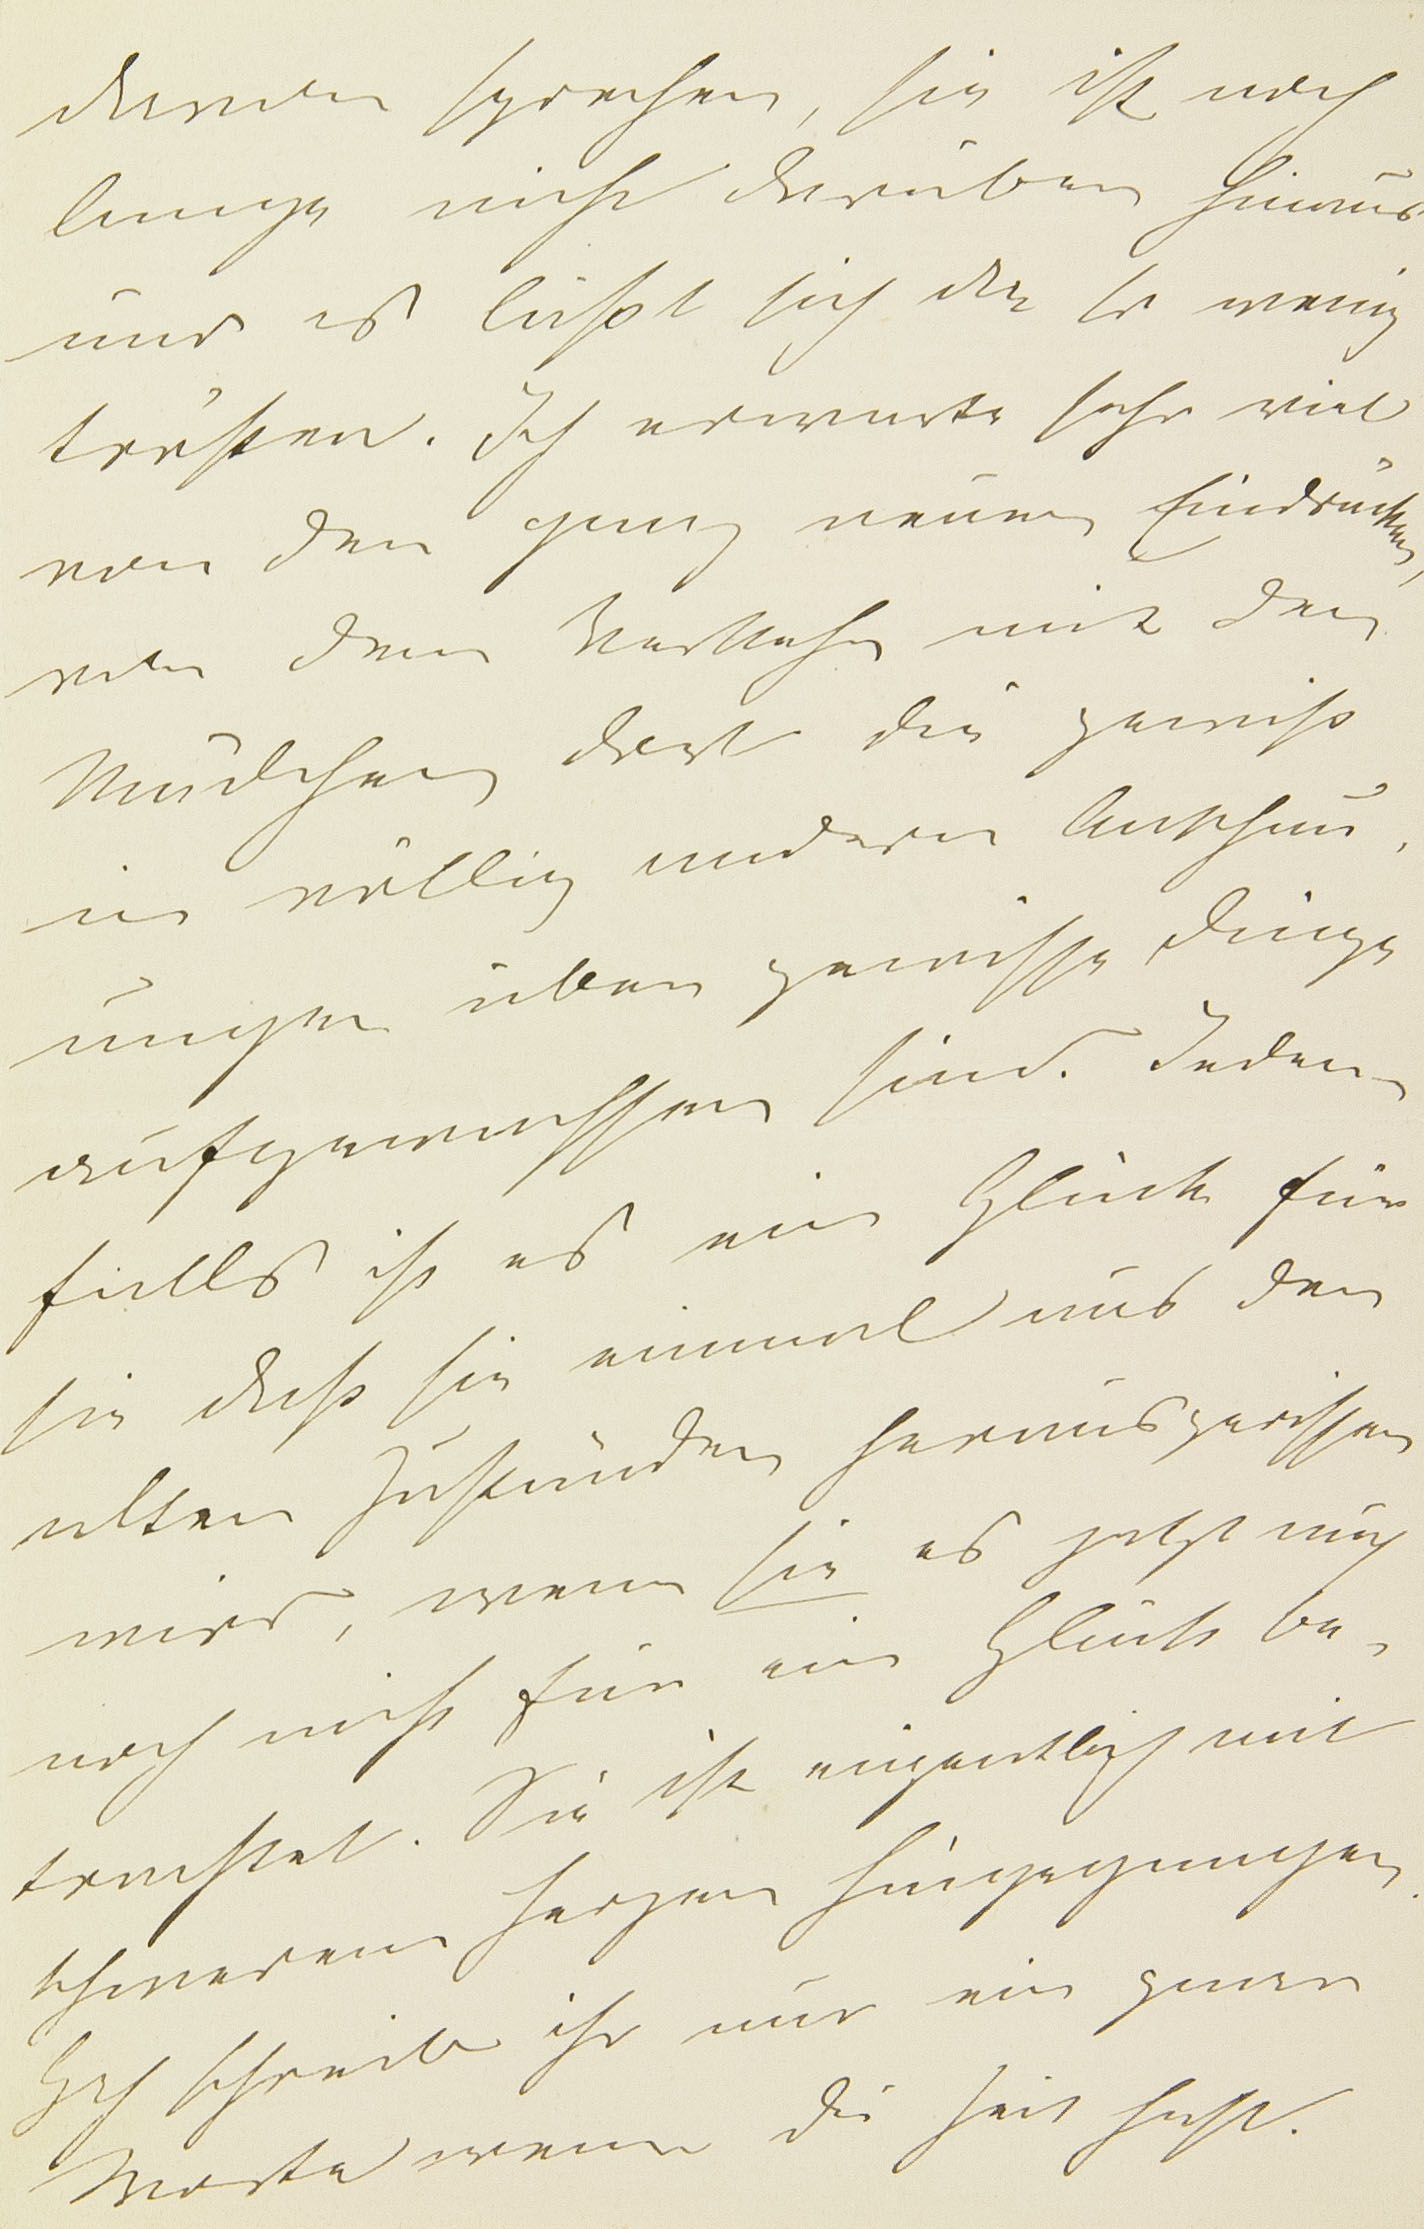 davon sprechen, sie ist noch
lange nicht darüber hinaus
und es läßt sich da so wenig
trösten. Ich erwarte sehr viel
von den ganz neuen Eindrücken,
von dem Verkehr mit den
Mädchen dort die gewiß
in völlig andern Anschau,
ungen über gewisse Dinge
aufgewachsen sind. Jeden
falls ist es ein Glück für
sie daß sie einmal aus den
alten Zuständen herausgerissen
wird, wenn sie es jetzt auch
noch nicht für ein Glück be-
trachtet. Sie ist eigentlich mit
schwerem Herzen hingegangen.
schreib ihr nur ein paar
Worte wenn du Zeit hast.